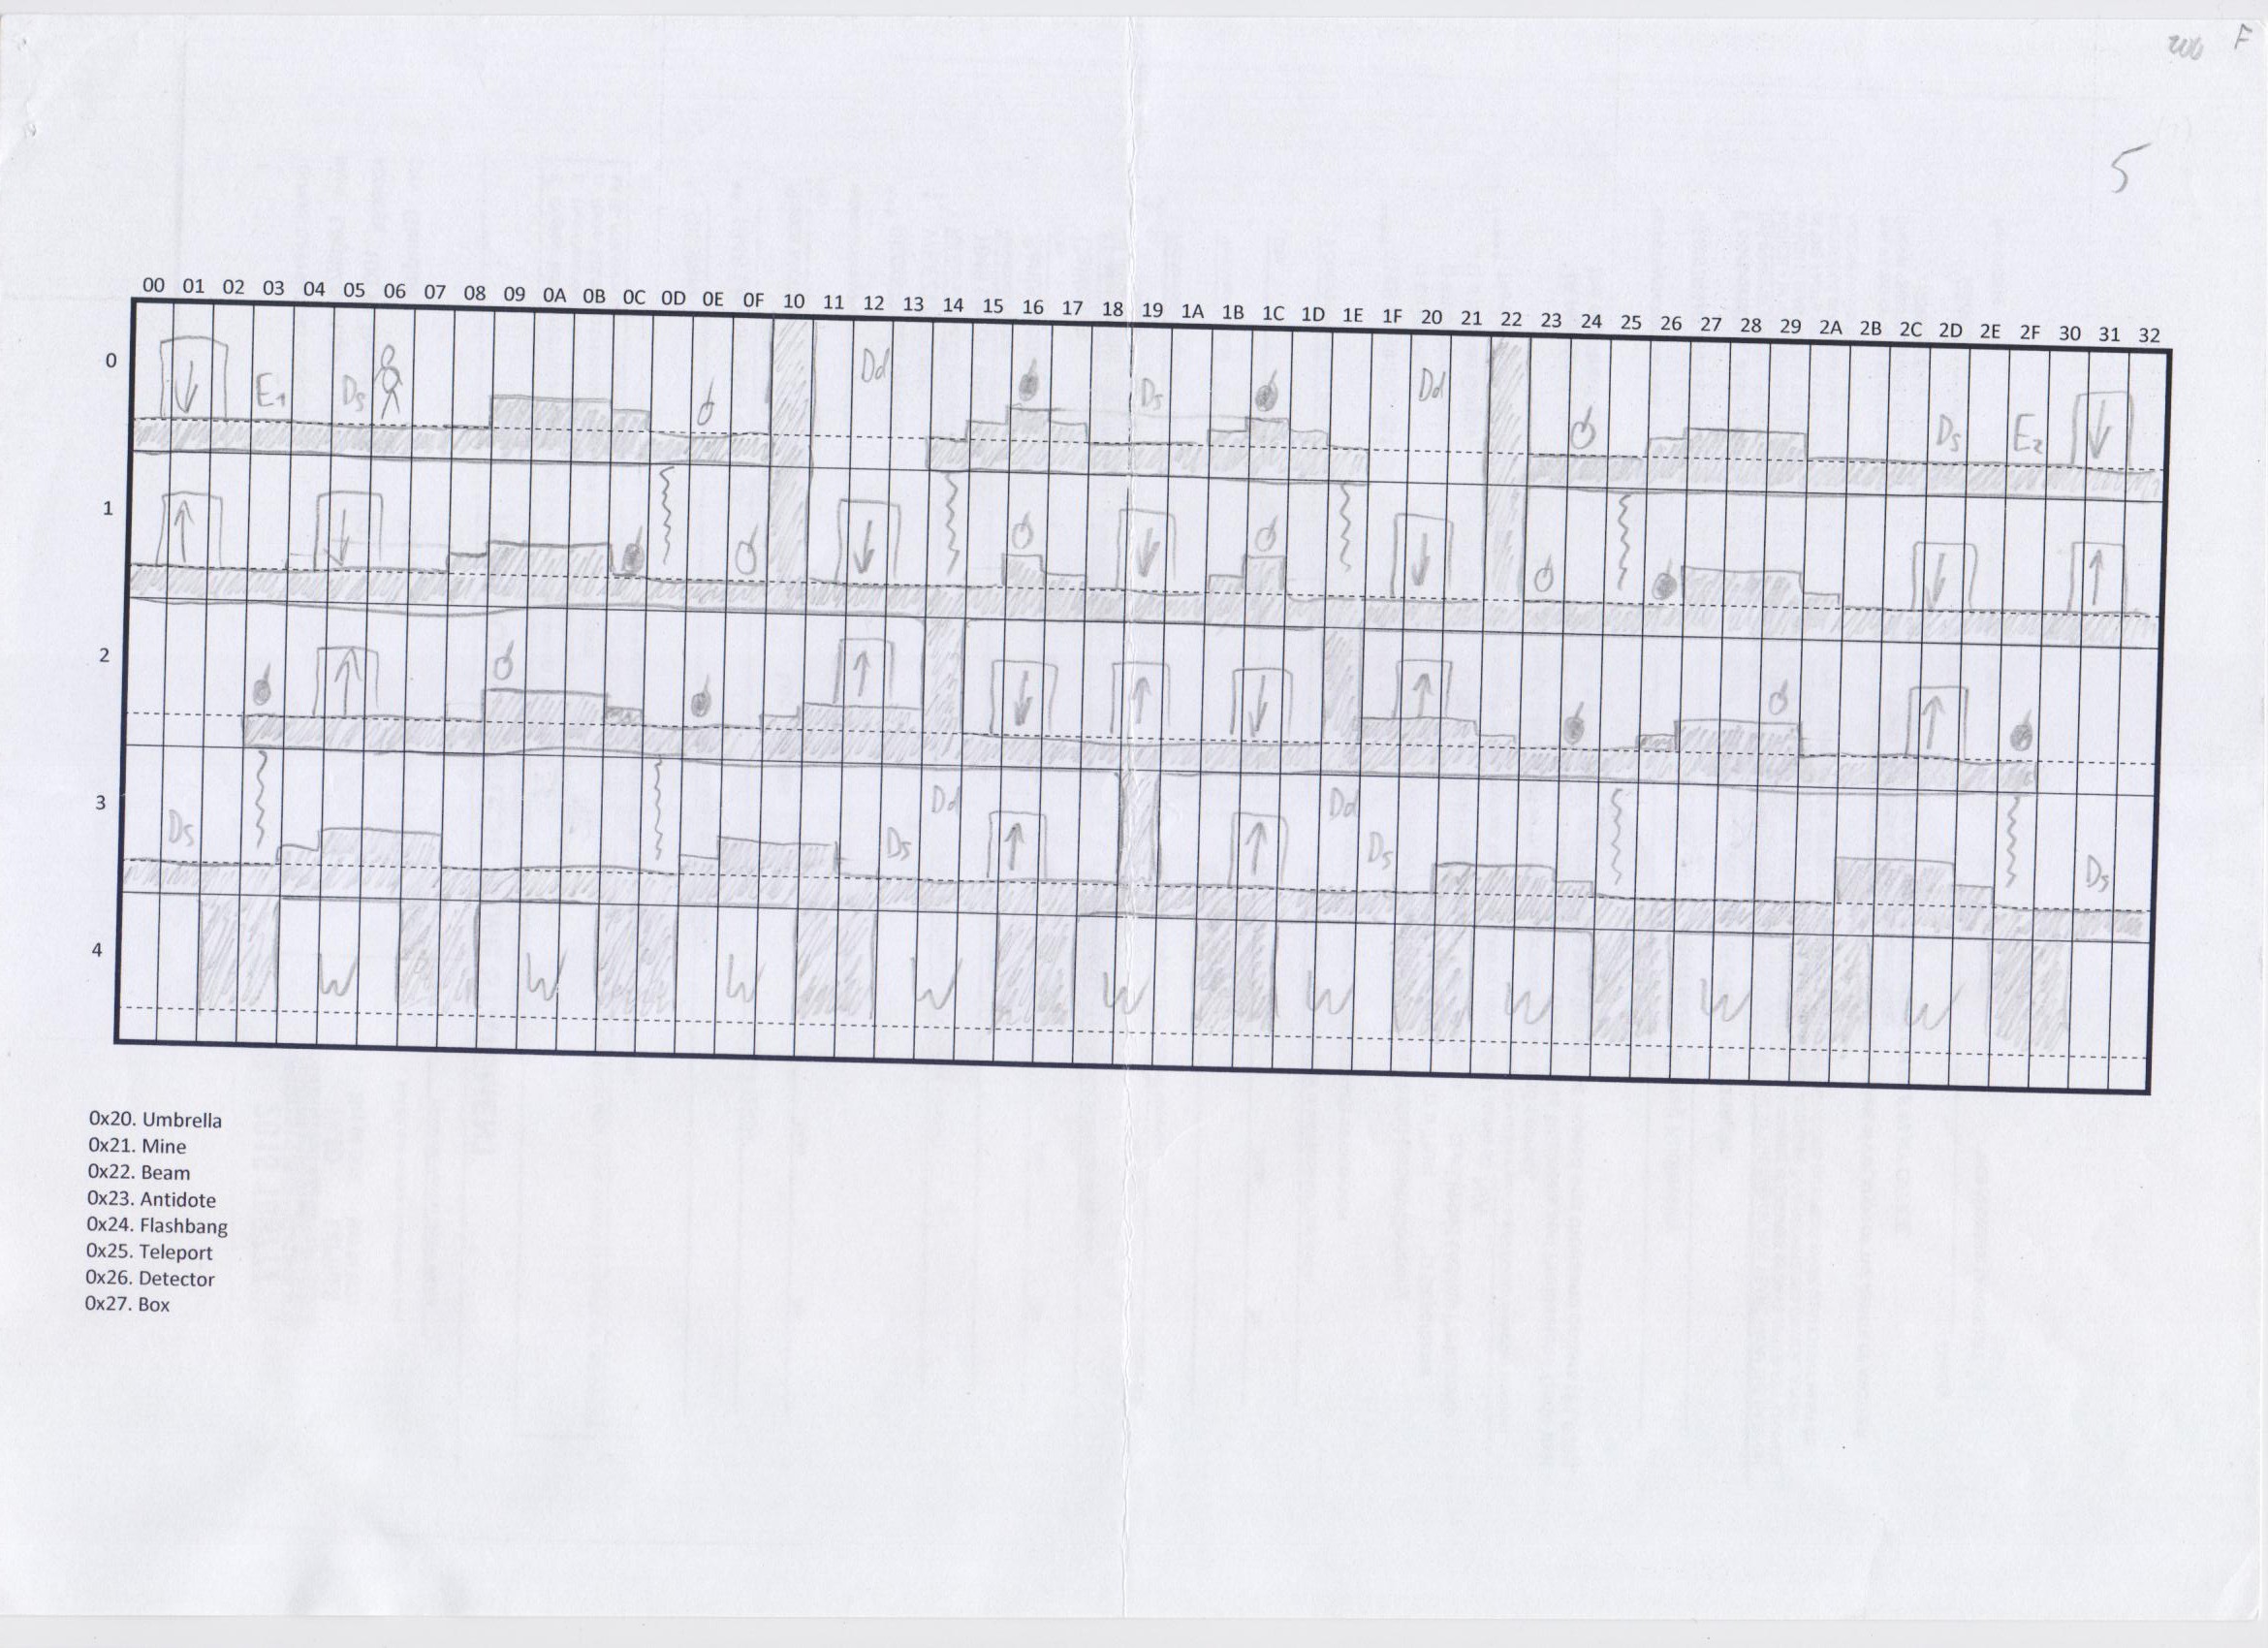 F
5
00 01 02 03 04 05 06 07 08 09 0A 0B 0C 0D 0E 0F 10 11 12 13 14 15 16 17 18 19 1A 1B 1C 1D 1E 1F 20 21 22 23 24 25 26 27 28 29 2A 2B 2C 2D 2E 2F 30 31 32
0 E1 Ds Dd Ds Dd Ds E2
1
2
3 Ds Ds Dd Dd Ds Ds
4 W W W W W W W W W
0x20. Umbrella
0x21. Mine
0x22. Beam
0x23. Antidote
0x24. Flashbang
0x25. Teleport
0x26. Detector
0x27. Box